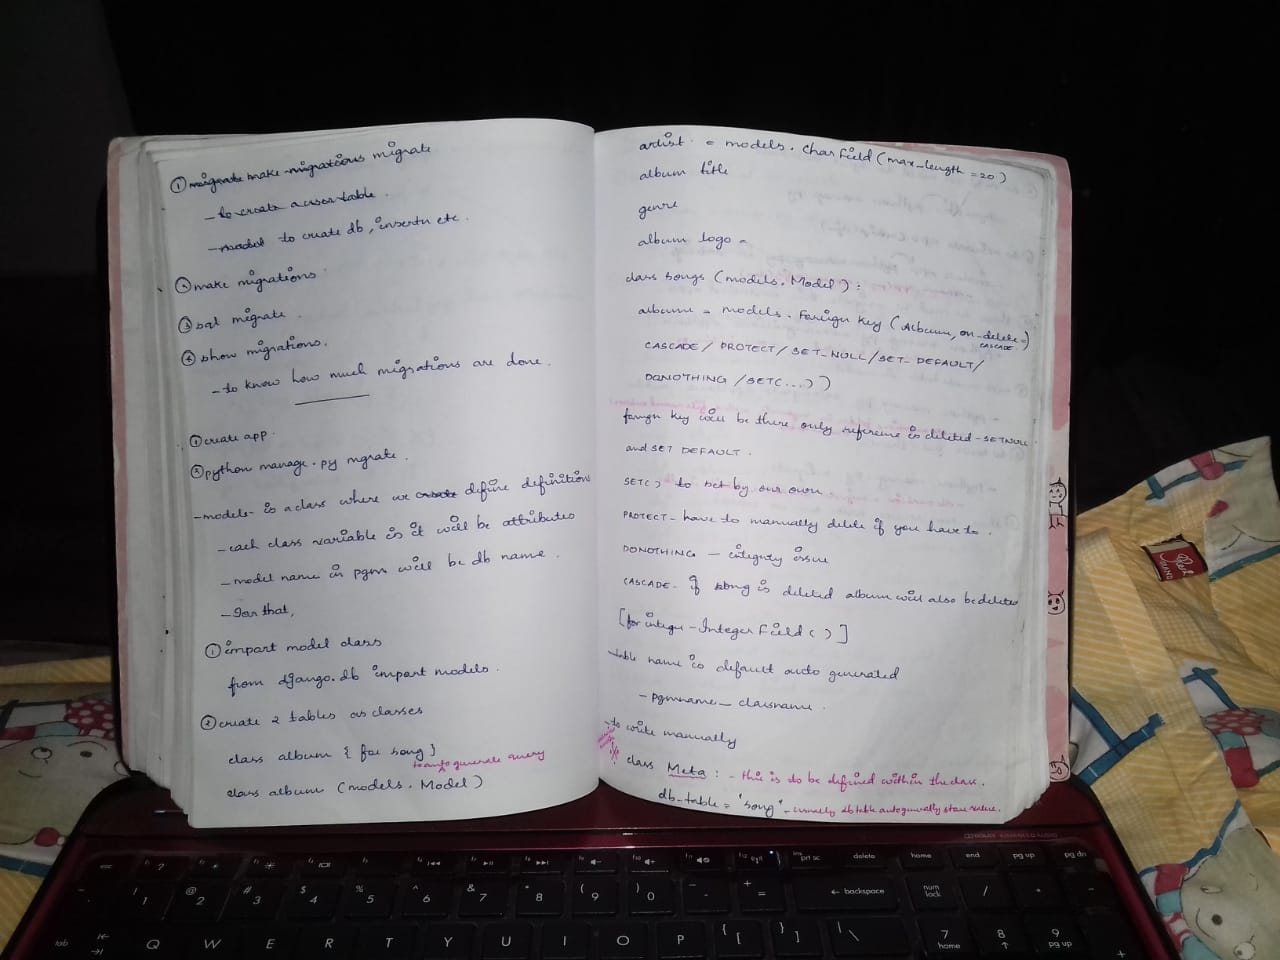 ① migrate make migrations migrate
- to create a user table.
- model to create db, insertn etc.
② make migrations
③ sql migrate.
④ show migrations.
- to know how much migrations are done.
① create app.
② python manage.py migrate.
- models - is a class where we create define definitions
- each class variable in it will be attributes
- model name in pgm will be db name.
- For that,
① import model class
from django.db import models.
② create 2 tables as classes
class album { for song }
to auto generate query
class album (models.Model)
artist = models.CharField (max_length = 20)
album title
genre
album logo =
class songs (models.Model):
album = models.Foreign key (Album, on_delete=)
CASCADE
CASCADE / PROTECT / SET_NULL / SET_DEFAULT /
DONOTHING / SET(...))
foreign key will be there only reference is deleted - SETNULL
and SET DEFAULT.
SET() to set by our own
PROTECT - have to manually delete if you have to.
DONOTHING - integrity issue
CASCADE - if song is deleted album will also be deleted
[for integer - Integer Field ( ) ]
table name is default auto generated
- pgmname_classname.
- to write manually
class Meta: - this is to be defined within the class.
db_table = "song" - usually db table
esc
f1 ?
f4
f5
f6
f7
f8
f9
f10
f11
f12
prt sc
delete
home
end
pg up
pg dn
! 1
@ 2
# 3
$ 4
% 5
^ 6
& 7
* 8
( 9
) 0
_ -
+ =
← backspace
num lock
/
*
-
tab
Q
W
E
R
T
Y
U
I
O
P
{ [
} ]
| \
7 home
8 ↑
9 pg up
+